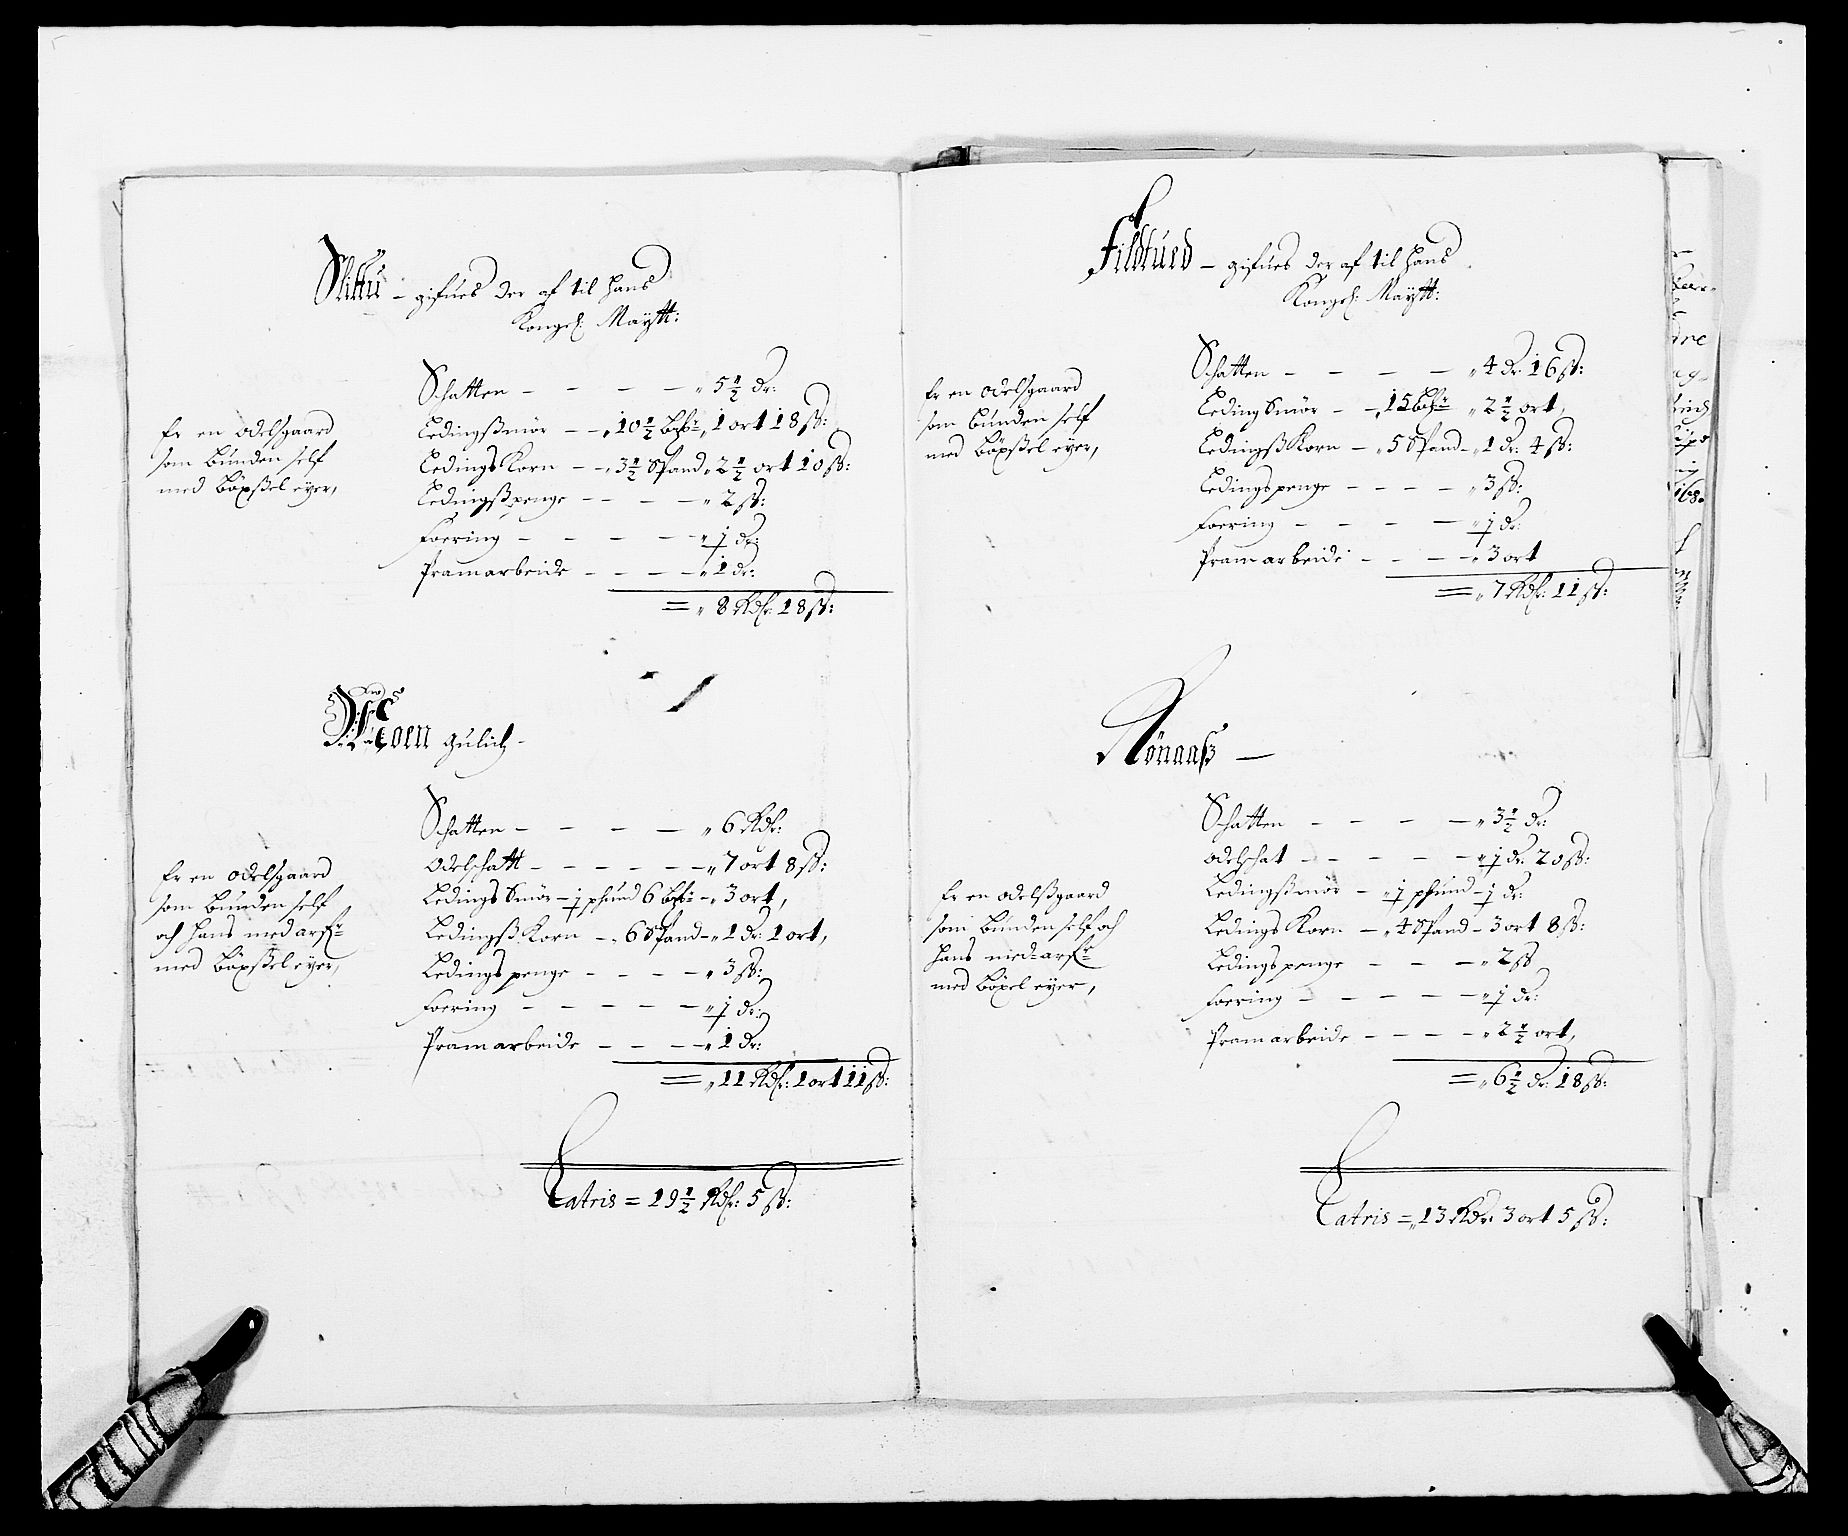 Slittu – gifues der af til hans
Kongel: Maÿtt:
Er en odelsgaard
som bunden self
med böxßel eÿer,
Schatten – – – – „ 5½ dr:
Ledingßmör – – „ 10½ b„ 1 ort 18 ß:
Ledings Korn – – „ 3½ Spand „ 2½ ort 10 ß:
Ledingßpenge – – – – „ 2 ß:
Foering – – – – – „ j dr:
Pramarbeide – – – – „ 1 dr:
= „ 8 Rdl: 18 ß:
Moen gulich –
Er en odelsgaard
som bunden self
och hans med arf:
med böxßel eÿer,
Schatten – – – – „ 6 Rdl:
Odelschatt – – – – – – „ 7 ort 8 ß:
Ledings Smör – j phund 6 „ 3 ort,
Ledingß Korn – „ 6 Spand – „ 1 dr: 1 ort,
Ledings penge – – – – „ 3 ß:
Foering – – – – – „ j dr:
Pramarbeide – – – – „ 1 dr:
= „ 11 Rdl: 1 ort 11 ß:
Latris = 19½ Rdl: 5 ß:
Fildtued – gifues der af til hans
Kongel: Maÿtt:
Er en odelsgaard
som bunden self
med böxßel eyer,
Schatten – – – – „ 4 dr 16 ß:
Leding Smör – – „ 15 „ 2½ ort,
Ledingß Korn – „ 5 Spand – „ 1 dr: 4 ß:
Ledingspenge – – – – „ 3 ß:
Foering – – – – „ j dr:
Pramarbeide – – – – „ 3 ort
= „ 7 Rdl: 11 ß:
Rönaaß –
Er en odelßgaard
som bunden self och
hans med arf:
med böxel eyer,
Schatten – – – – „ 3½ dr:
Odelschat – – – – – „ j dr: 20 ß:
Ledingßmör – „ j phund – j dr:
Ledings Korn – „ 4 Spand – 3 ort 8 ß:
Ledingspenge – – – „ 2 ß
Foering – – – – – „ j dr:
Pramarbeide – – – – „ 2½ ort,
= „ 6½ dr: 18 ß:
Latris = „ 13 Rdr 3 ort 5 ß: